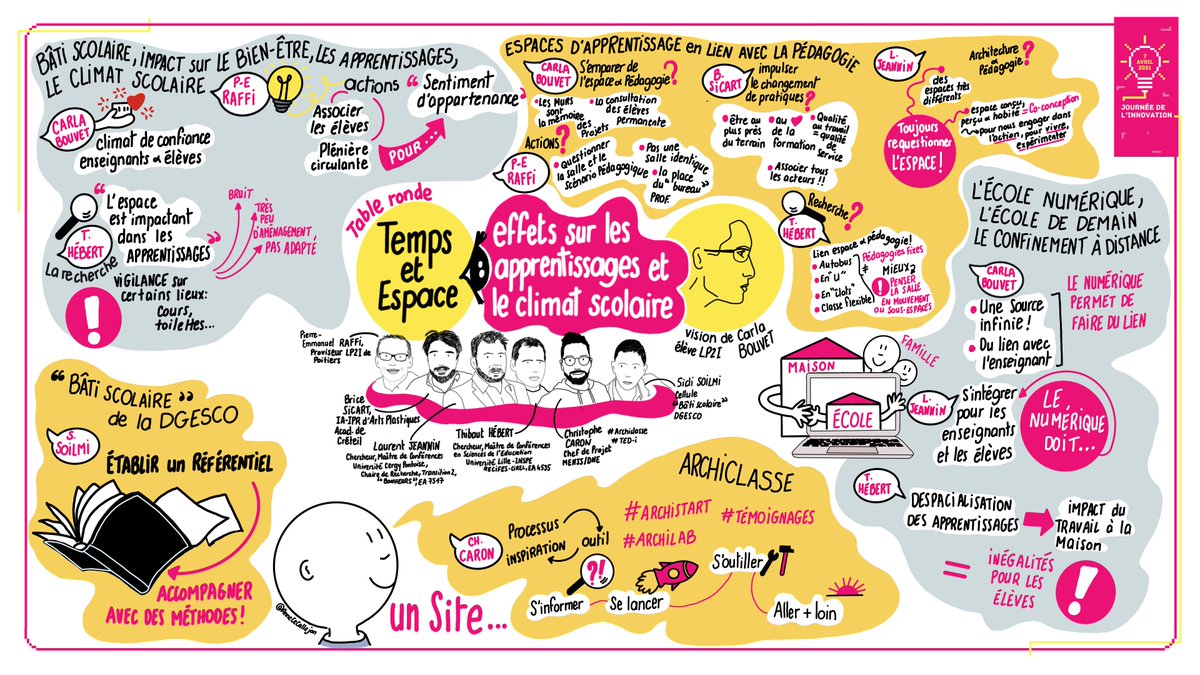 BÂTI SCOLAIRE, IMPACT SUR LE BIEN-ÊTRE, LES APPRENTISSAGES,
LE CLIMAT SCOLAIRE
CARLA
BOUVET
climat de confiance
enseignants & élèves
P-E
RAFFI
actions
Associer
les élèves
Plénière
circulante
POUR...
" Sentiment
d'appartenance "
" L'espace
est impactant
dans les
APPRENTISSAGES "
T.
HÉBERT
La recherche
BRUIT
TRÈS
PEU
D'AMÉNAGEMENT,
PAS ADAPTÉ
!
VIGILANCE sur
certains lieux:
Cours,
toilettes...
ESPACES D'APPRENTISSAGE en LIEN AVEC LA PÉDAGOGIE
CARLA
BOUVET
S'emparer de
l'espace & Pédagogie?
Les MURS
sont
la mémoire
des
Projets
La consultation
des élèves
permanente
ACTIONS?
P-E
RAFFI
Questionner
la salle et le
Scénario Pédagogique
Pas une
salle identique
la place
du "bureau"
PROF.
B.
SICART
impulser
le changement
de pratiques?
être au
plus près
du terrain
au ♥
de la
formation
Qualité
au travail
= qualité
de
service
Associer tous
les acteurs !!
T.
HÉBERT
Recherche?
Lien espace & pédagogie!
Autobus
En "U"
En "îlots"
Classe flexible
Pédagogies fixes
≠
MIEUX?
! PENSER
LA SALLE
EN MOUVEMENT
OU SOUS-ESPACES
L.
JEANNIN
Architecture
& Pédagogie?
des
espaces très
différents
Toujours
requestionner
L'ESPACE!
espace conçu,
perçu & habité = Co-conception
pour nous engager dans
l'action, pour vivre,
expérimenter
7
AVRIL
2021
JOURNÉE DE
L'INNOVATION
Table ronde
Temps
et
Espace
effets sur les
apprentissages et
le climat scolaire
vision de Carla
BOUVET
élève LP2I
Pierre-
Emmanuel RAFFI,
Proviseur LP2I de
Poitiers
Brice
SICART,
IA-IPR d'Arts Plastiques
Acad. de
Créteil
Laurent JEANNIN
Chercheur, Maître de Conférences
Université Cergy Pontoise,
Chaire de Recherche, Transition 2,
"BONHEURS" EA 7517
Thibaut HÉBERT
Chercheur, Maître de Conférences
en Sciences de l'Éducation
Université Lille -INSPE
RECIFES-CIREL, EA 4535
Christophe
CARON
Chef de Projet
MENJS/DNE
#Archiclasse
#TED-i
Sidi SOILMI
Cellule
"Bâti scolaire"
DGESCO
L'ÉCOLE NUMÉRIQUE,
L'ÉCOLE DE DEMAIN
LE CONFINEMENT À DISTANCE
CARLA
BOUVET
Une Source
infinie!
Du lien avec
l'enseignant
LE NUMÉRIQUE
PERMET DE
FAIRE DU LIEN
MAISON
FAMILLE
ÉCOLE
L.
JEANNIN
S'intégrer
pour les
enseignants
et les élèves
LE
NUMÉRIQUE
DOIT...
T.
HÉBERT
DESPACIALISATION
DES APPRENTISSAGES
IMPACT DU
TRAVAIL À LA
MAISON
=
INÉGALITÉS
POUR LES
ÉLÈVES
!
" BÂTI SCOLAIRE "
de la DGESCO
S.
SOILMI
ÉTABLIR un RÉFÉRENTIEL
ACCOMPAGNER
AVEC DES MÉTHODES!
un Site...
ARCHICLASSE
CH.
CARON
Processus
INSPIRATION
outil
#ARCHISTART
#TÉMOIGNAGES
#ARCHILAB
?!
S'informer
Se lancer
S'outiller
Aller + loin